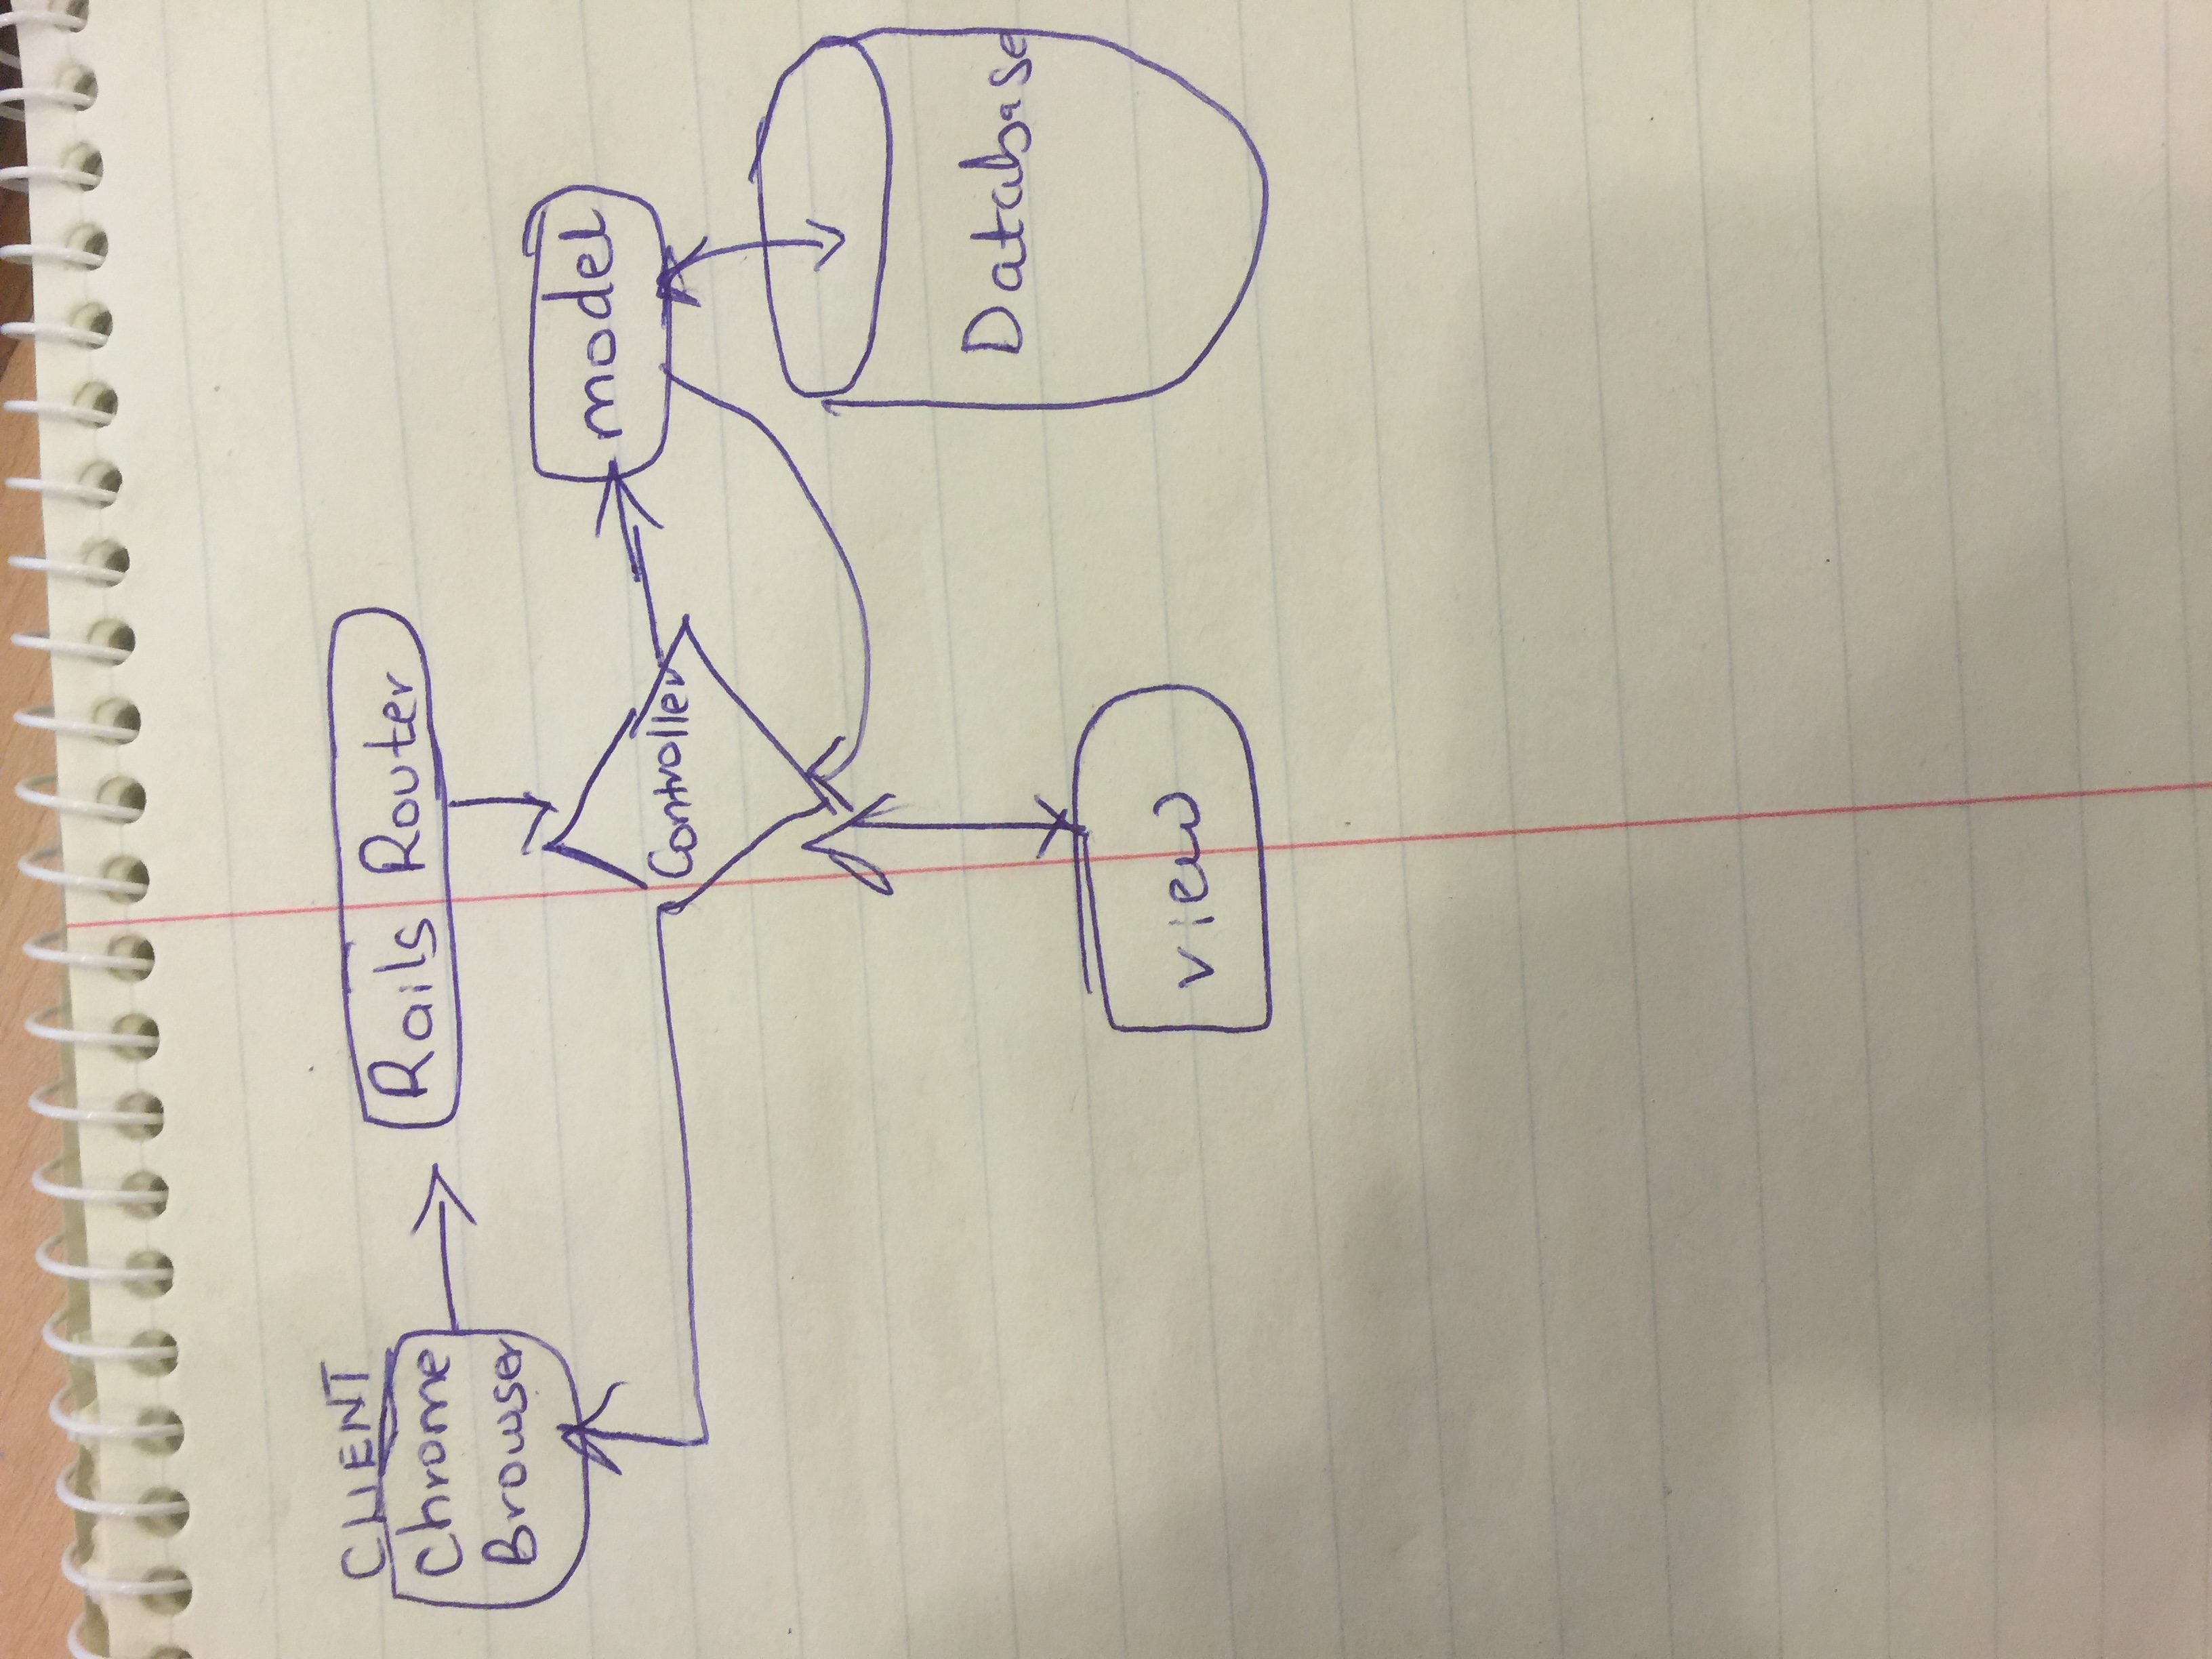 CLIENT
Chrome
Browser
Rails Router
model
Controller
Database
view